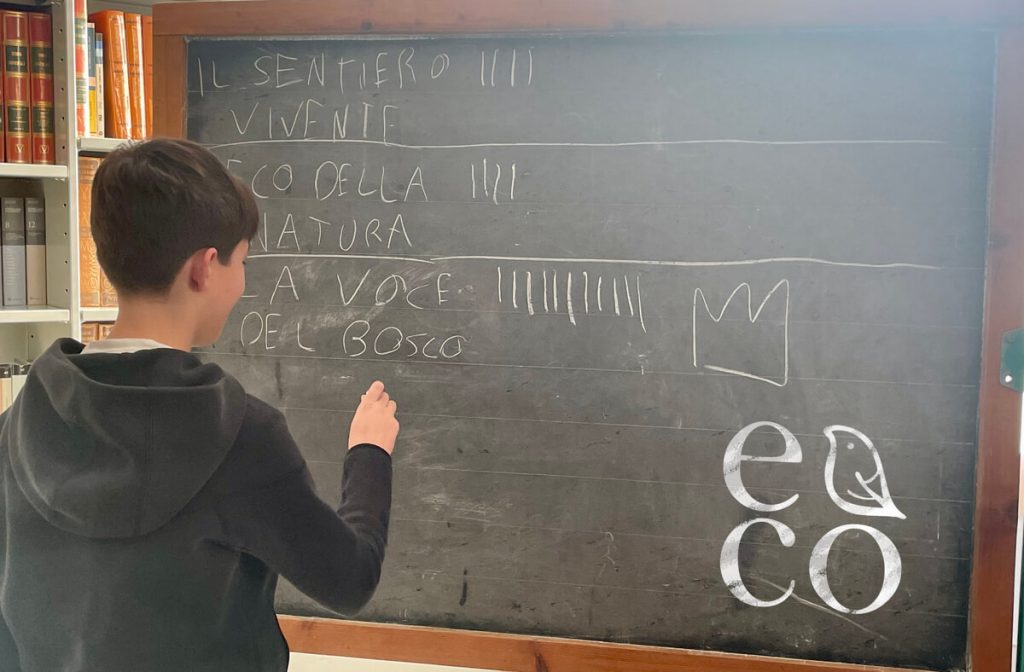 IL SENTIERO ||||
VIVENTE
ECO DELLA ||||
NATURA
LA VOCE
DEL BOSCO
e
co